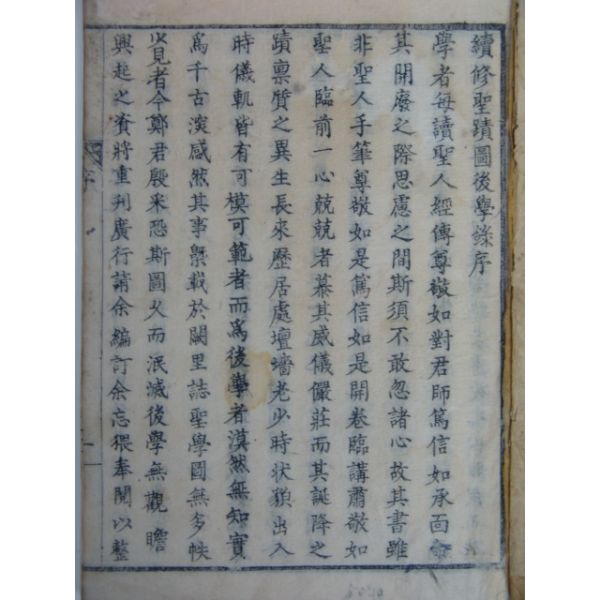 續修聖蹟圖後學錄序
學者每讀聖人經傳尊敬如對君師篤信如承面命
其開廢之際思慮之間斯須不敢忽諸心故其書雖
非聖人手筆尊敬如是篤信如是開卷臨講肅敬如
聖人臨前一心兢兢者慕其威儀儼莊而其誕降之
蹟禀質之異生長來歷居處壇墻老少時状貌出入
時儀軌皆有可模可範者而爲後學者漠然無知實
爲千古演感然其事槩載於闕里誌聖學圖無多帙
少見者今鄭君殷采恐斯圖久而泯滅後學無觀瞻
興起之資將重刊廣行請余編訂余忘猥奉閱以整
序
一
5020